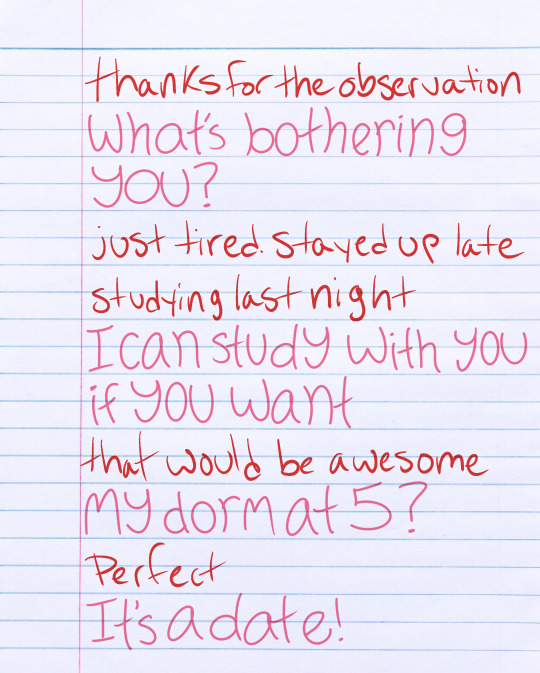 thanks for the observation
What's bothering
you?
just tired. Stayed up late
studying last night
I can study with you
if you want
that would be awesome
My dorm at 5?
Perfect
It's a date!